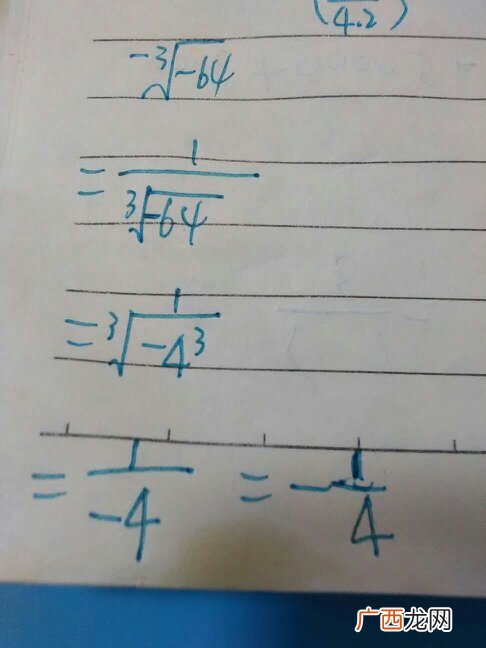 (—/4.2)
-³√-64
= 1/³√-64
= 1/³√-4³
= 1/-4 = -1/4
广西龙网